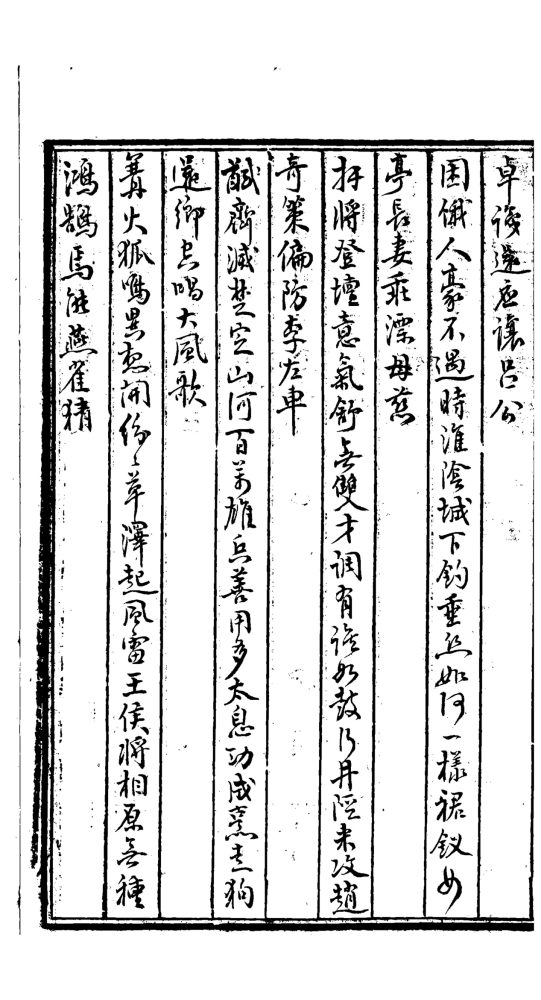 卓識還應讓呂公
困餓人豪不遇時淮陰城下釣垂絲如何一樣裙釵女
亭長妻乖漂母慈
拜將登壇意氣舒無雙才調有誰如鼓行井陘來攻趙
奇策偏防李左車
馘齊滅楚定山河百萬雄兵善用多太息功成烹走狗
還鄉空唱大風歌
篝火狐鳴異想開紛々草澤起風雷王侯將相原無種
鴻鵠焉能燕雀猜